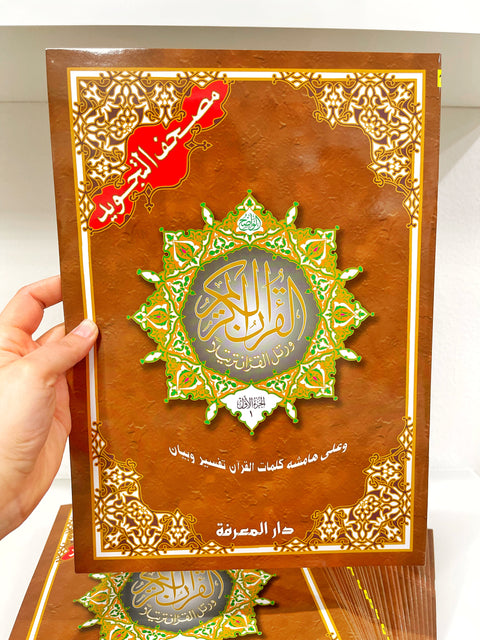 مصحف التجويد
الواضح
القرآن الكريم
ورتل القرآن ترتيلا
الجزء الأول
١
وعلى هامشه كلمات القرآن تفسير وبيان
دار المعرفة
القرآن الكريم
ورتل القرآن ترتيلا